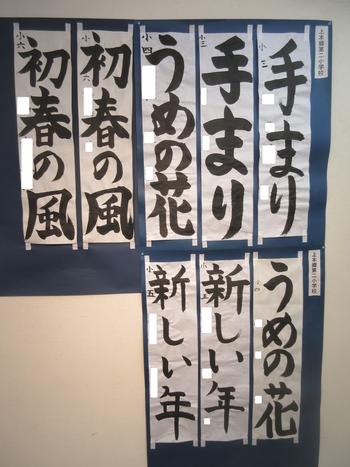 上本郷第二小学校
小三
手まり
小三
手まり
小四
うめの花
小六
初春の風
小六
初春の風
上本郷第二小学校
小四
うめの花
小五
新しい年
小五
新しい年